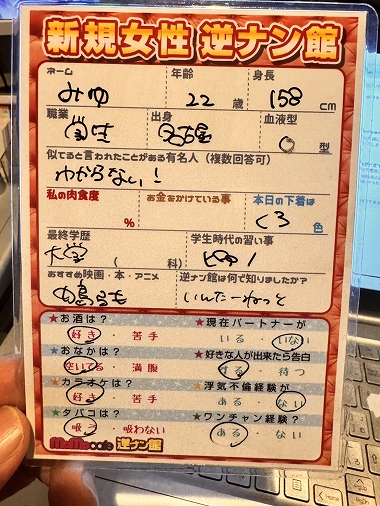 新規女性 逆ナン館
ネーム 年齢 身長
みゆ 22 歳 158 cm
職業 出身 血液型
学生 名古屋 O 型
似てると言われたことがある有名人（複数回答可）
わからない！
私の肉食度 お金をかけている事 本日の下着は
% くろ 色
最終学歴 学生時代の習い事
大学 （ 科） ピアノ
おすすめ映画・本・アニメ 逆ナン館は何で知りましたか？
中島らも いんたーねっと
★お酒は？ ★現在パートナーが
好き・苦手 いる・いない
★おなかは？ ★好きな人が出来たら告白
空いてる・満腹 する・待つ
★カラオケは？ ★浮気不倫経験が
好き・苦手 ある・ない
★タバコは？ ★ワンチャン経験？
吸う・吸わない ある・ない
MoMo cafe 逆ナン館